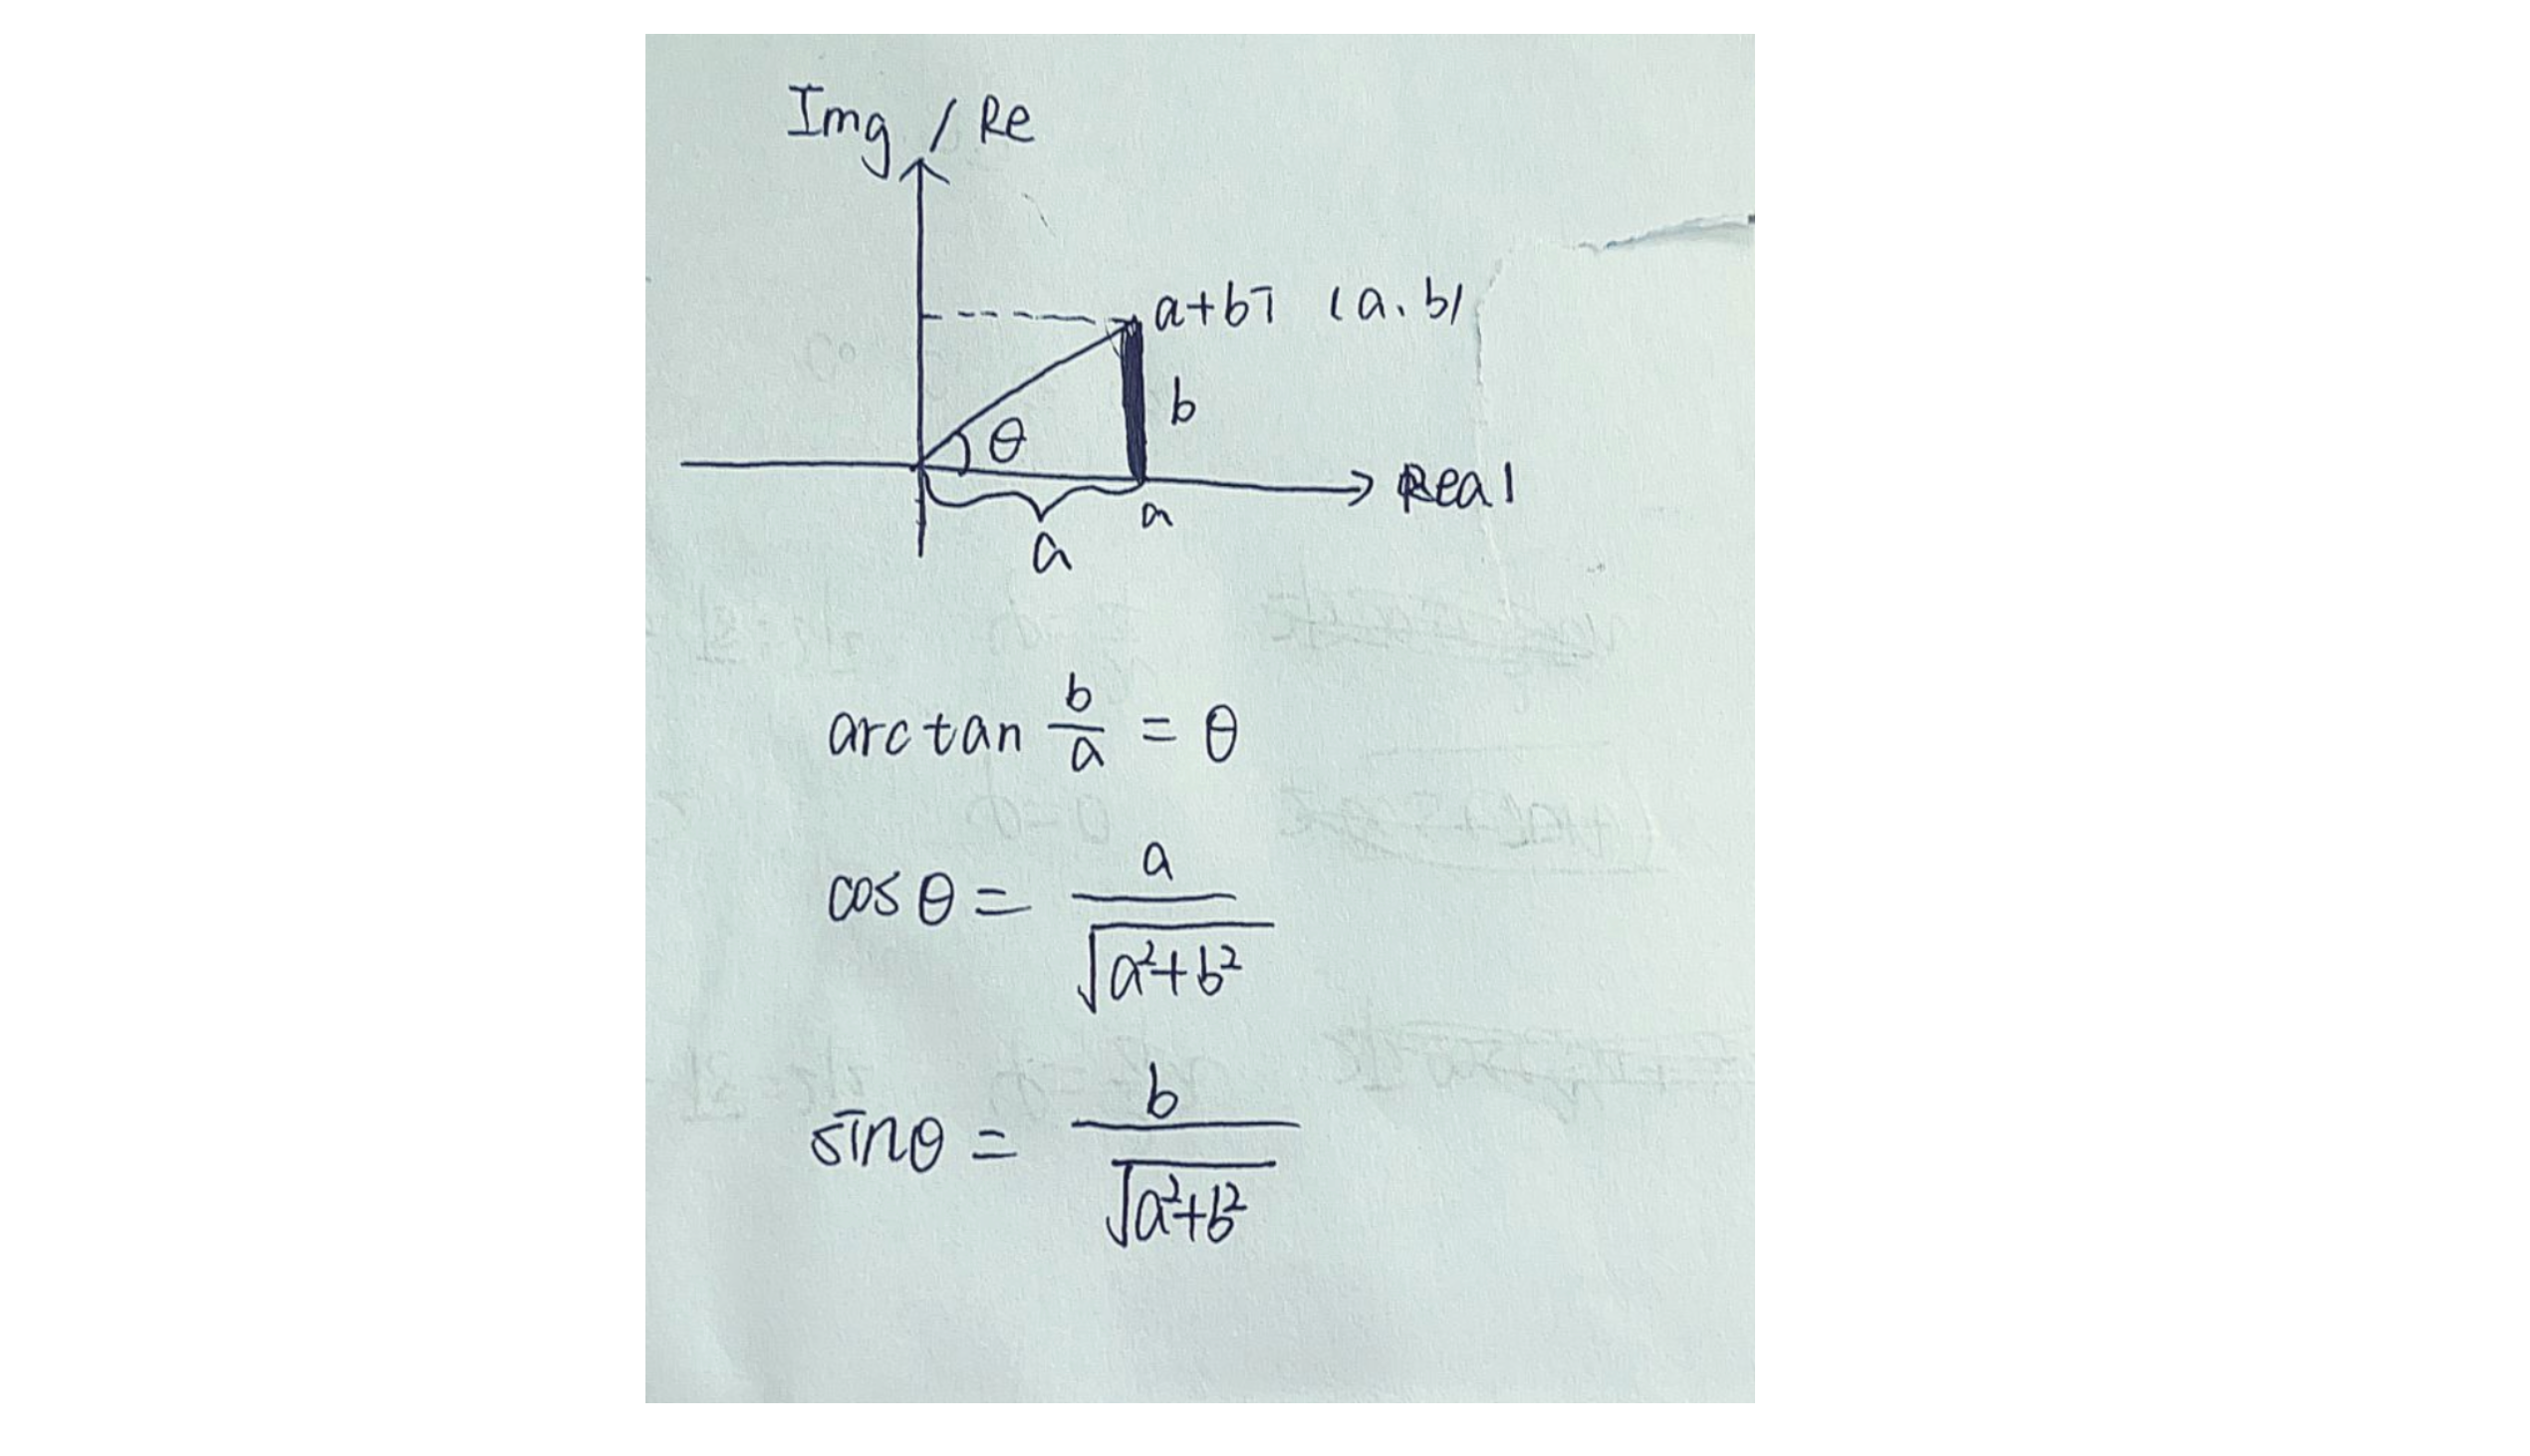 Img / Re
a+bi (a, b)
b
θ
Real
a
a
arctan b/a = θ
cos θ = a/√a²+b²
sinθ = b/√a²+b²